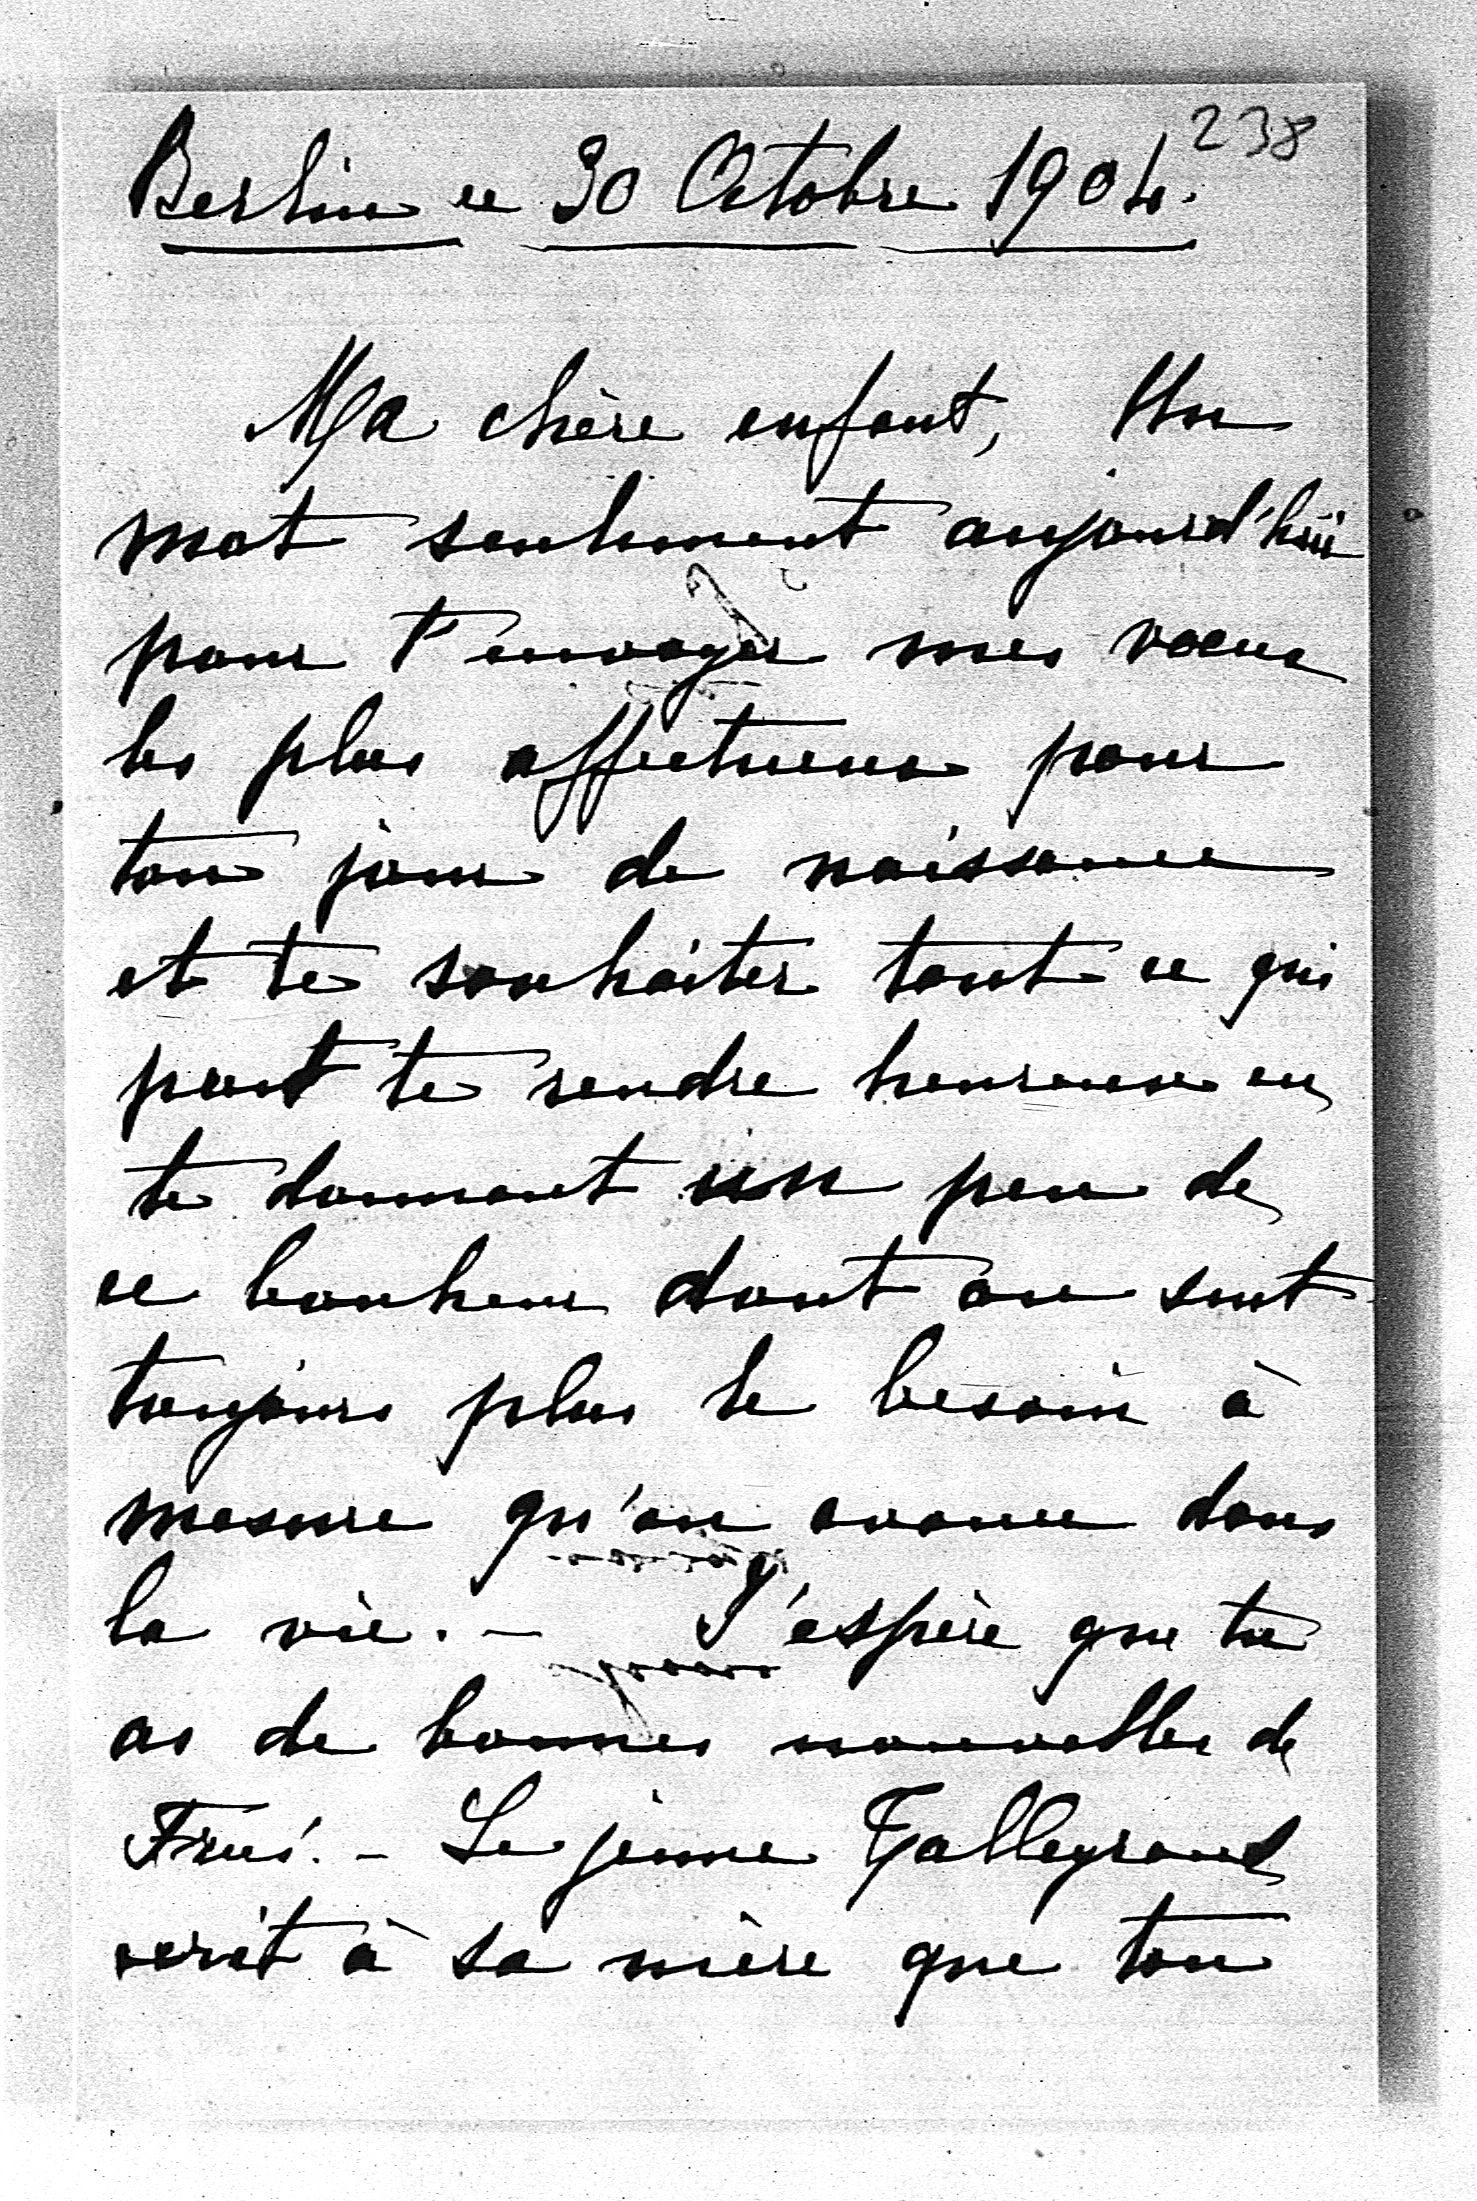 238
Berlin ce 30 Octobre 1904.
Ma chère enfant, Un
mot seulement aujourd'hui
pour t'envoyer mes voeux
les plus affectueux pour
ton jour de naissance
et te souhaiter tout ce qui
peut te rendre heureuse en
te donnant un peu de
ce bonheur dont on sent
toujours plus le besoin à
mesure qu'on avance dans
la vie. - J'espère que tu
as de bonnes nouvelles de
- Le jeune Talleyrand
écrit à sa mère que ton